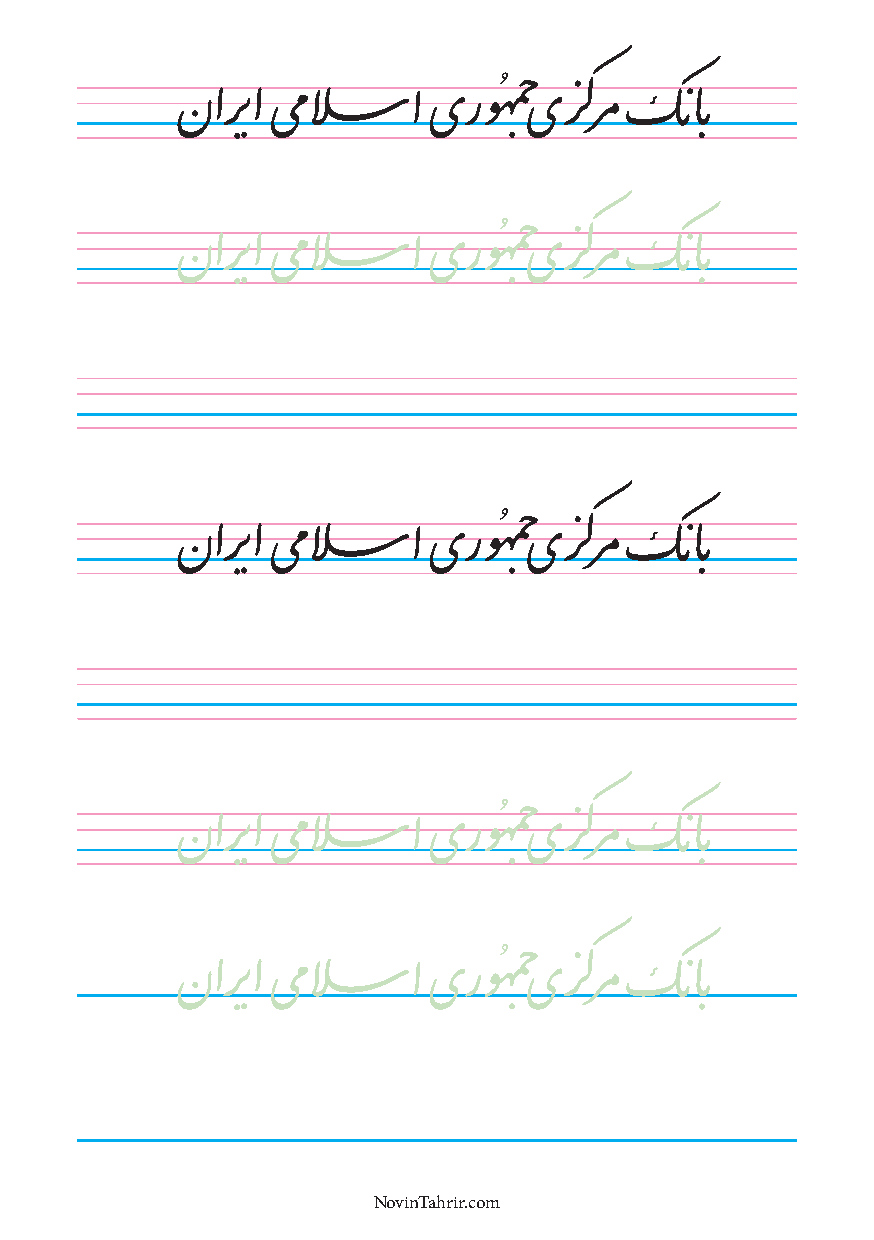 بانک مرکزی جمهُوری اسلامی ایران
بانک مرکزی جمهُوری اسلامی ایران
بانک مرکزی جمهُوری اسلامی ایران
بانک مرکزی جمهُوری اسلامی ایران
بانک مرکزی جمهُوری اسلامی ایران
NovinTahrir.com